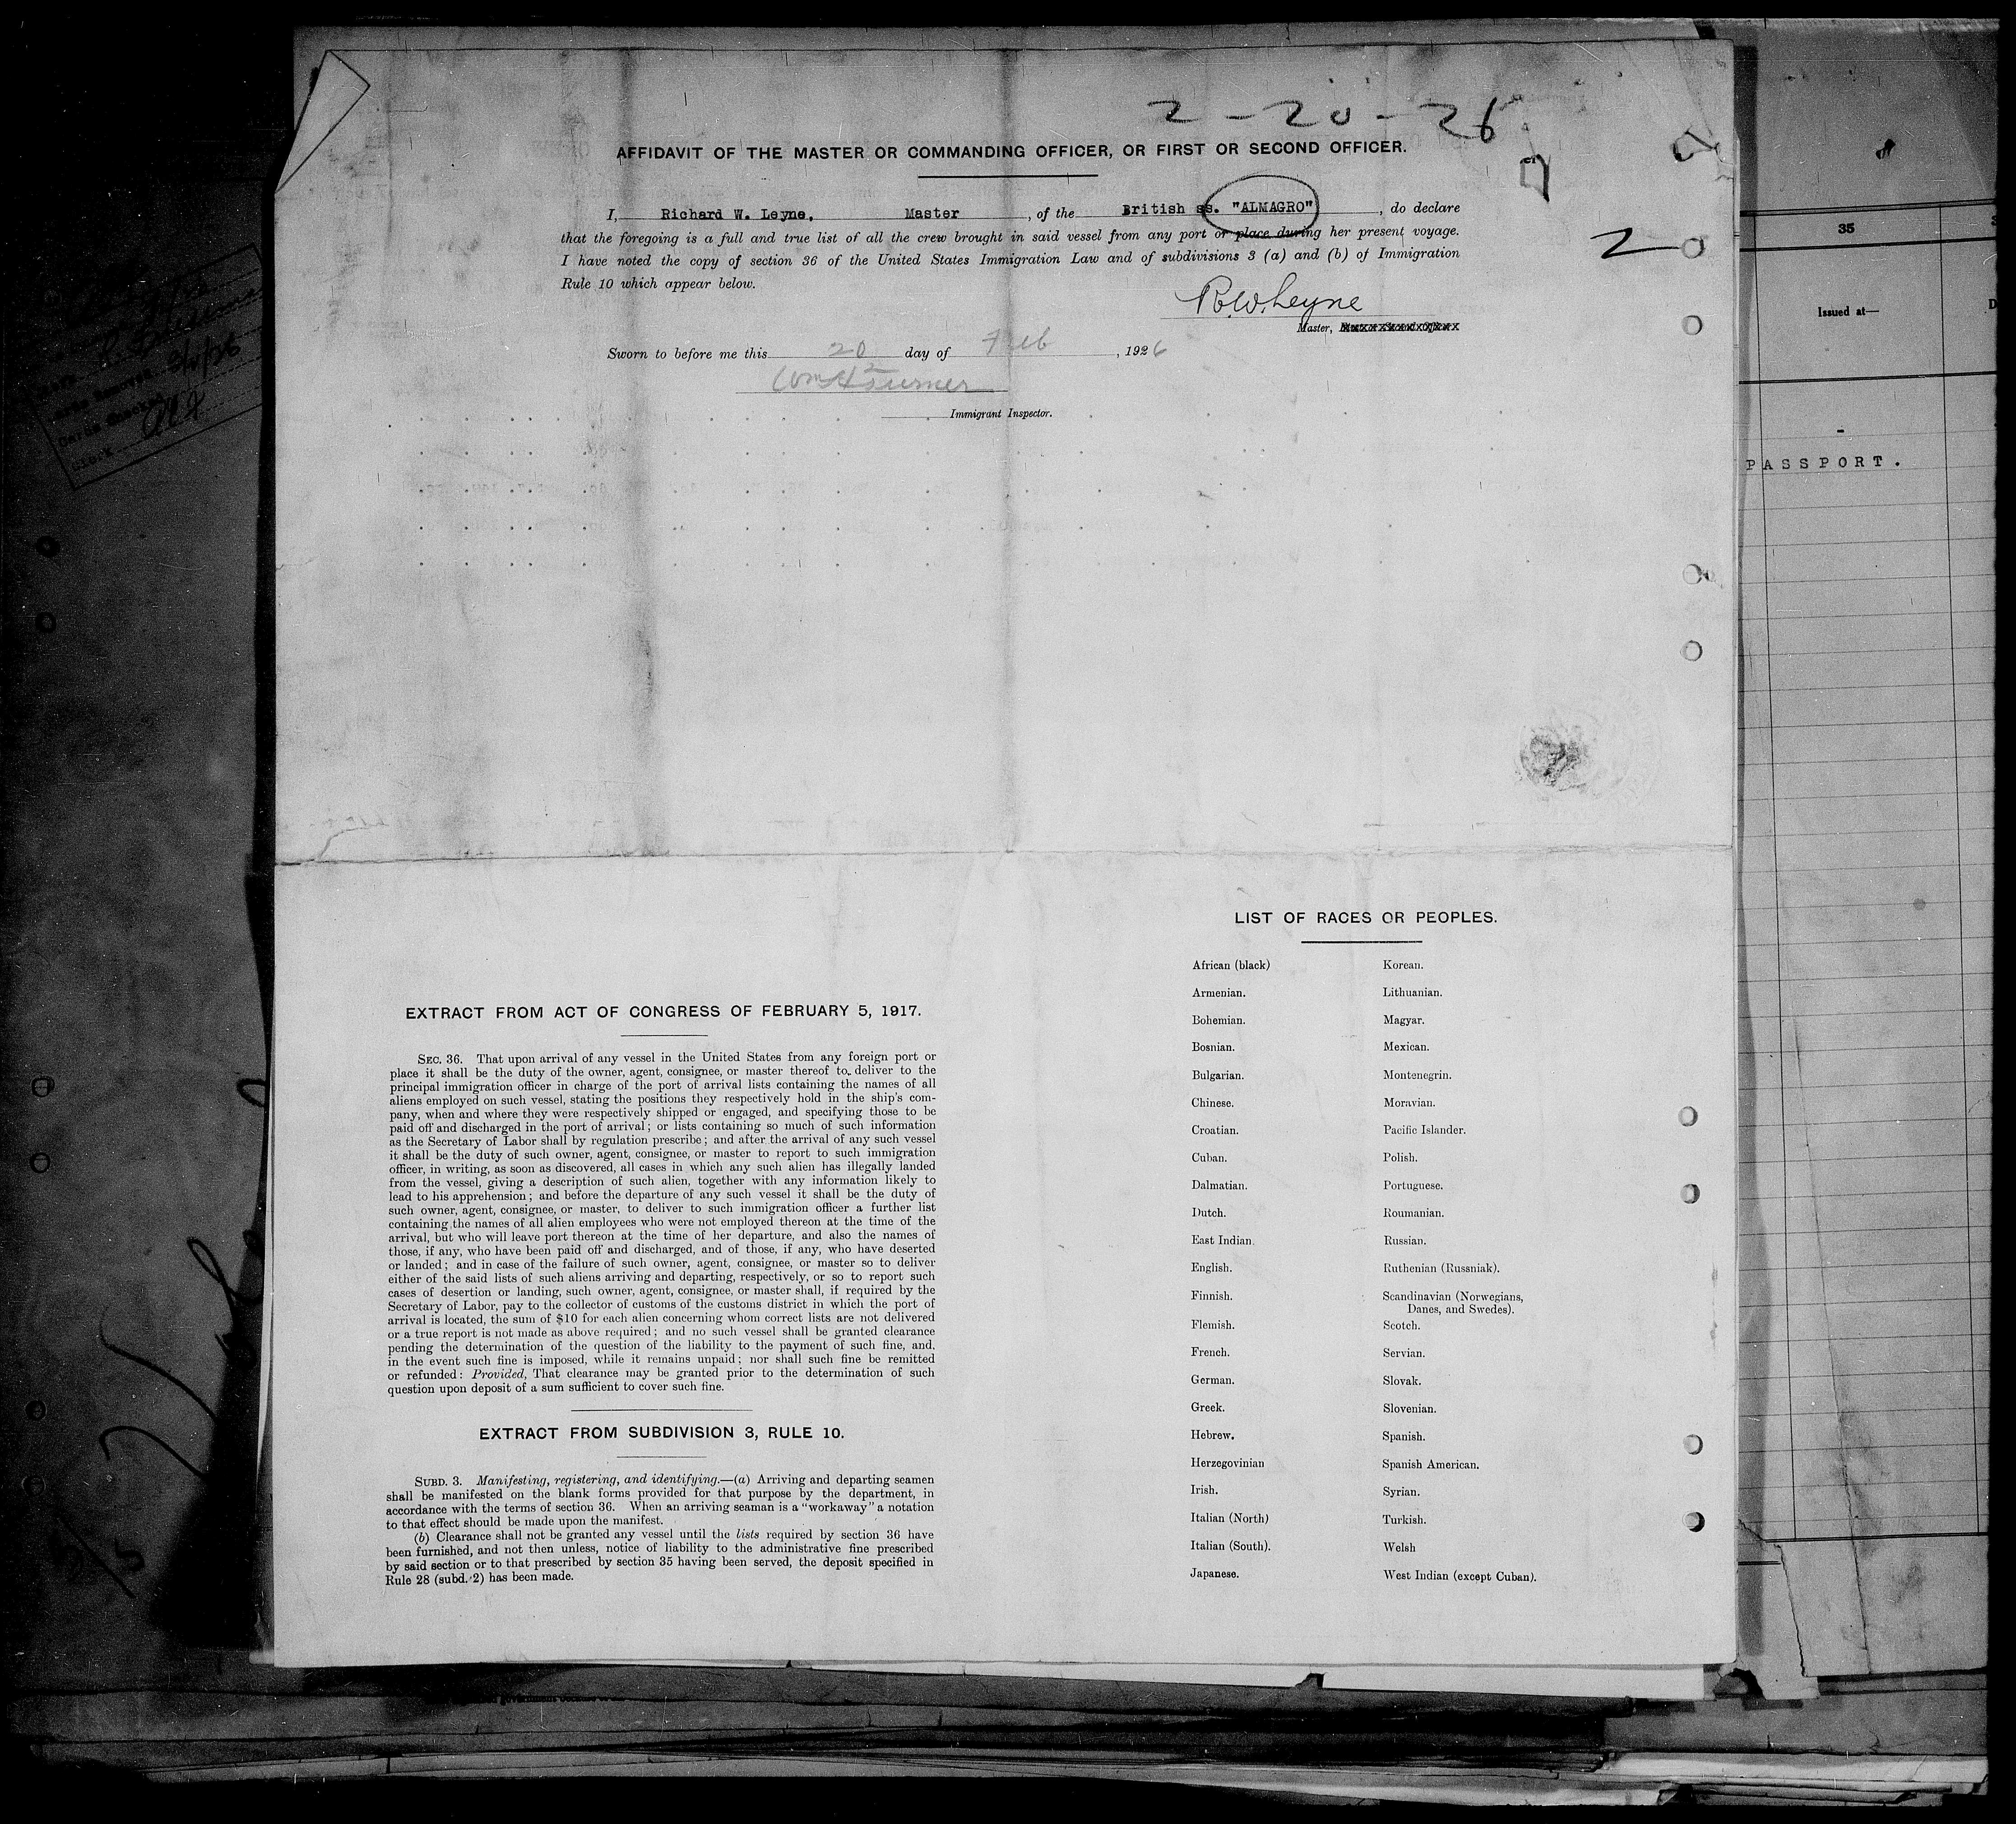 2-20-26
AFFIDAVIT OF THE MASTER OR COMMANDING OFFICER, OR FIRST OR SECOND OFFICER.
I, Richard W. Leyne, Master, of the British ss. "ALMAGRO", do declare
that the foregoing is a full and true list of all the crew brought in said vessel from any port or place during her present voyage.
I have noted the copy of section 36 of the United States Immigration Law and of subdivisions 3 (a) and (b) of Immigration
Rule 10 which appear below.
R.W. Leyne
Master,
Sworn to before me this 20 day of Feb, 1926
Turner
Immigrant Inspector.
2
35
Issued at—
PASSPORT.
EXTRACT FROM ACT OF CONGRESS OF FEBRUARY 5, 1917.
SEC. 36. That upon arrival of any vessel in the United States from any foreign port or
place it shall be the duty of the owner, agent, consignee, or master thereof to deliver to the
principal immigration officer in charge of the port of arrival lists containing the names of all
aliens employed on such vessel, stating the positions they respectively hold in the ship's com-
pany, when and where they were respectively shipped or engaged, and specifying those to be
paid off and discharged in the port of arrival; or lists containing so much of such information
as the Secretary of Labor shall by regulation prescribe; and after the arrival of any such vessel
it shall be the duty of such owner, agent, consignee, or master to report to such immigration
officer, in writing, as soon as discovered, all cases in which any such alien has illegally landed
from the vessel, giving a description of such alien, together with any information likely to
lead to his apprehension; and before the departure of any such vessel it shall be the duty of
such owner, agent, consignee, or master, to deliver to such immigration officer a further list
containing the names of all alien employees who were not employed thereon at the time of the
arrival, but who will leave port thereon at the time of her departure, and also the names of
those, if any, who have been paid off and discharged, and of those, if any, who have deserted
or landed; and in case of the failure of such owner, agent, consignee, or master so to deliver
either of the said lists of such aliens arriving and departing, respectively, or so to report such
cases of desertion or landing, such owner, agent, consignee, or master shall, if required by the
Secretary of Labor, pay to the collector of customs of the customs district in which the port of
arrival is located, the sum of $10 for each alien concerning whom correct lists are not delivered
or a true report is not made as above required; and no such vessel shall be granted clearance
pending the determination of the question of the liability to the payment of such fine, and,
in the event such fine is imposed, while it remains unpaid; nor shall such fine be remitted
or refunded: Provided, That clearance may be granted prior to the determination of such
question upon deposit of a sum sufficient to cover such fine.
EXTRACT FROM SUBDIVISION 3, RULE 10.
SUBD. 3. Manifesting, registering, and identifying.—(a) Arriving and departing seamen
shall be manifested on the blank forms provided for that purpose by the department, in
accordance with the terms of section 36. When an arriving seaman is a "workaway" a notation
to that effect should be made upon the manifest.
(b) Clearance shall not be granted any vessel until the lists required by section 36 have
been furnished, and not then unless, notice of liability to the administrative fine prescribed
by said section or to that prescribed by section 35 having been served, the deposit specified in
Rule 28 (subd. 2) has been made.
LIST OF RACES OR PEOPLES.
African (black)
Armenian.
Bohemian.
Bosnian.
Bulgarian.
Chinese.
Croatian.
Cuban.
Dalmatian.
Dutch.
East Indian.
English.
Finnish.
Flemish.
French.
German.
Greek.
Hebrew.
Herzegovinian
Irish.
Italian (North)
Italian (South).
Japanese.
Korean.
Lithuanian.
Magyar.
Mexican.
Montenegrin.
Moravian.
Pacific Islander.
Polish.
Portuguese.
Roumanian.
Russian.
Ruthenian (Russniak).
Scandinavian (Norwegians,
Danes, and Swedes).
Scotch.
Servian.
Slovak.
Slovenian.
Spanish.
Spanish American.
Syrian.
Turkish.
Welsh
West Indian (except Cuban).